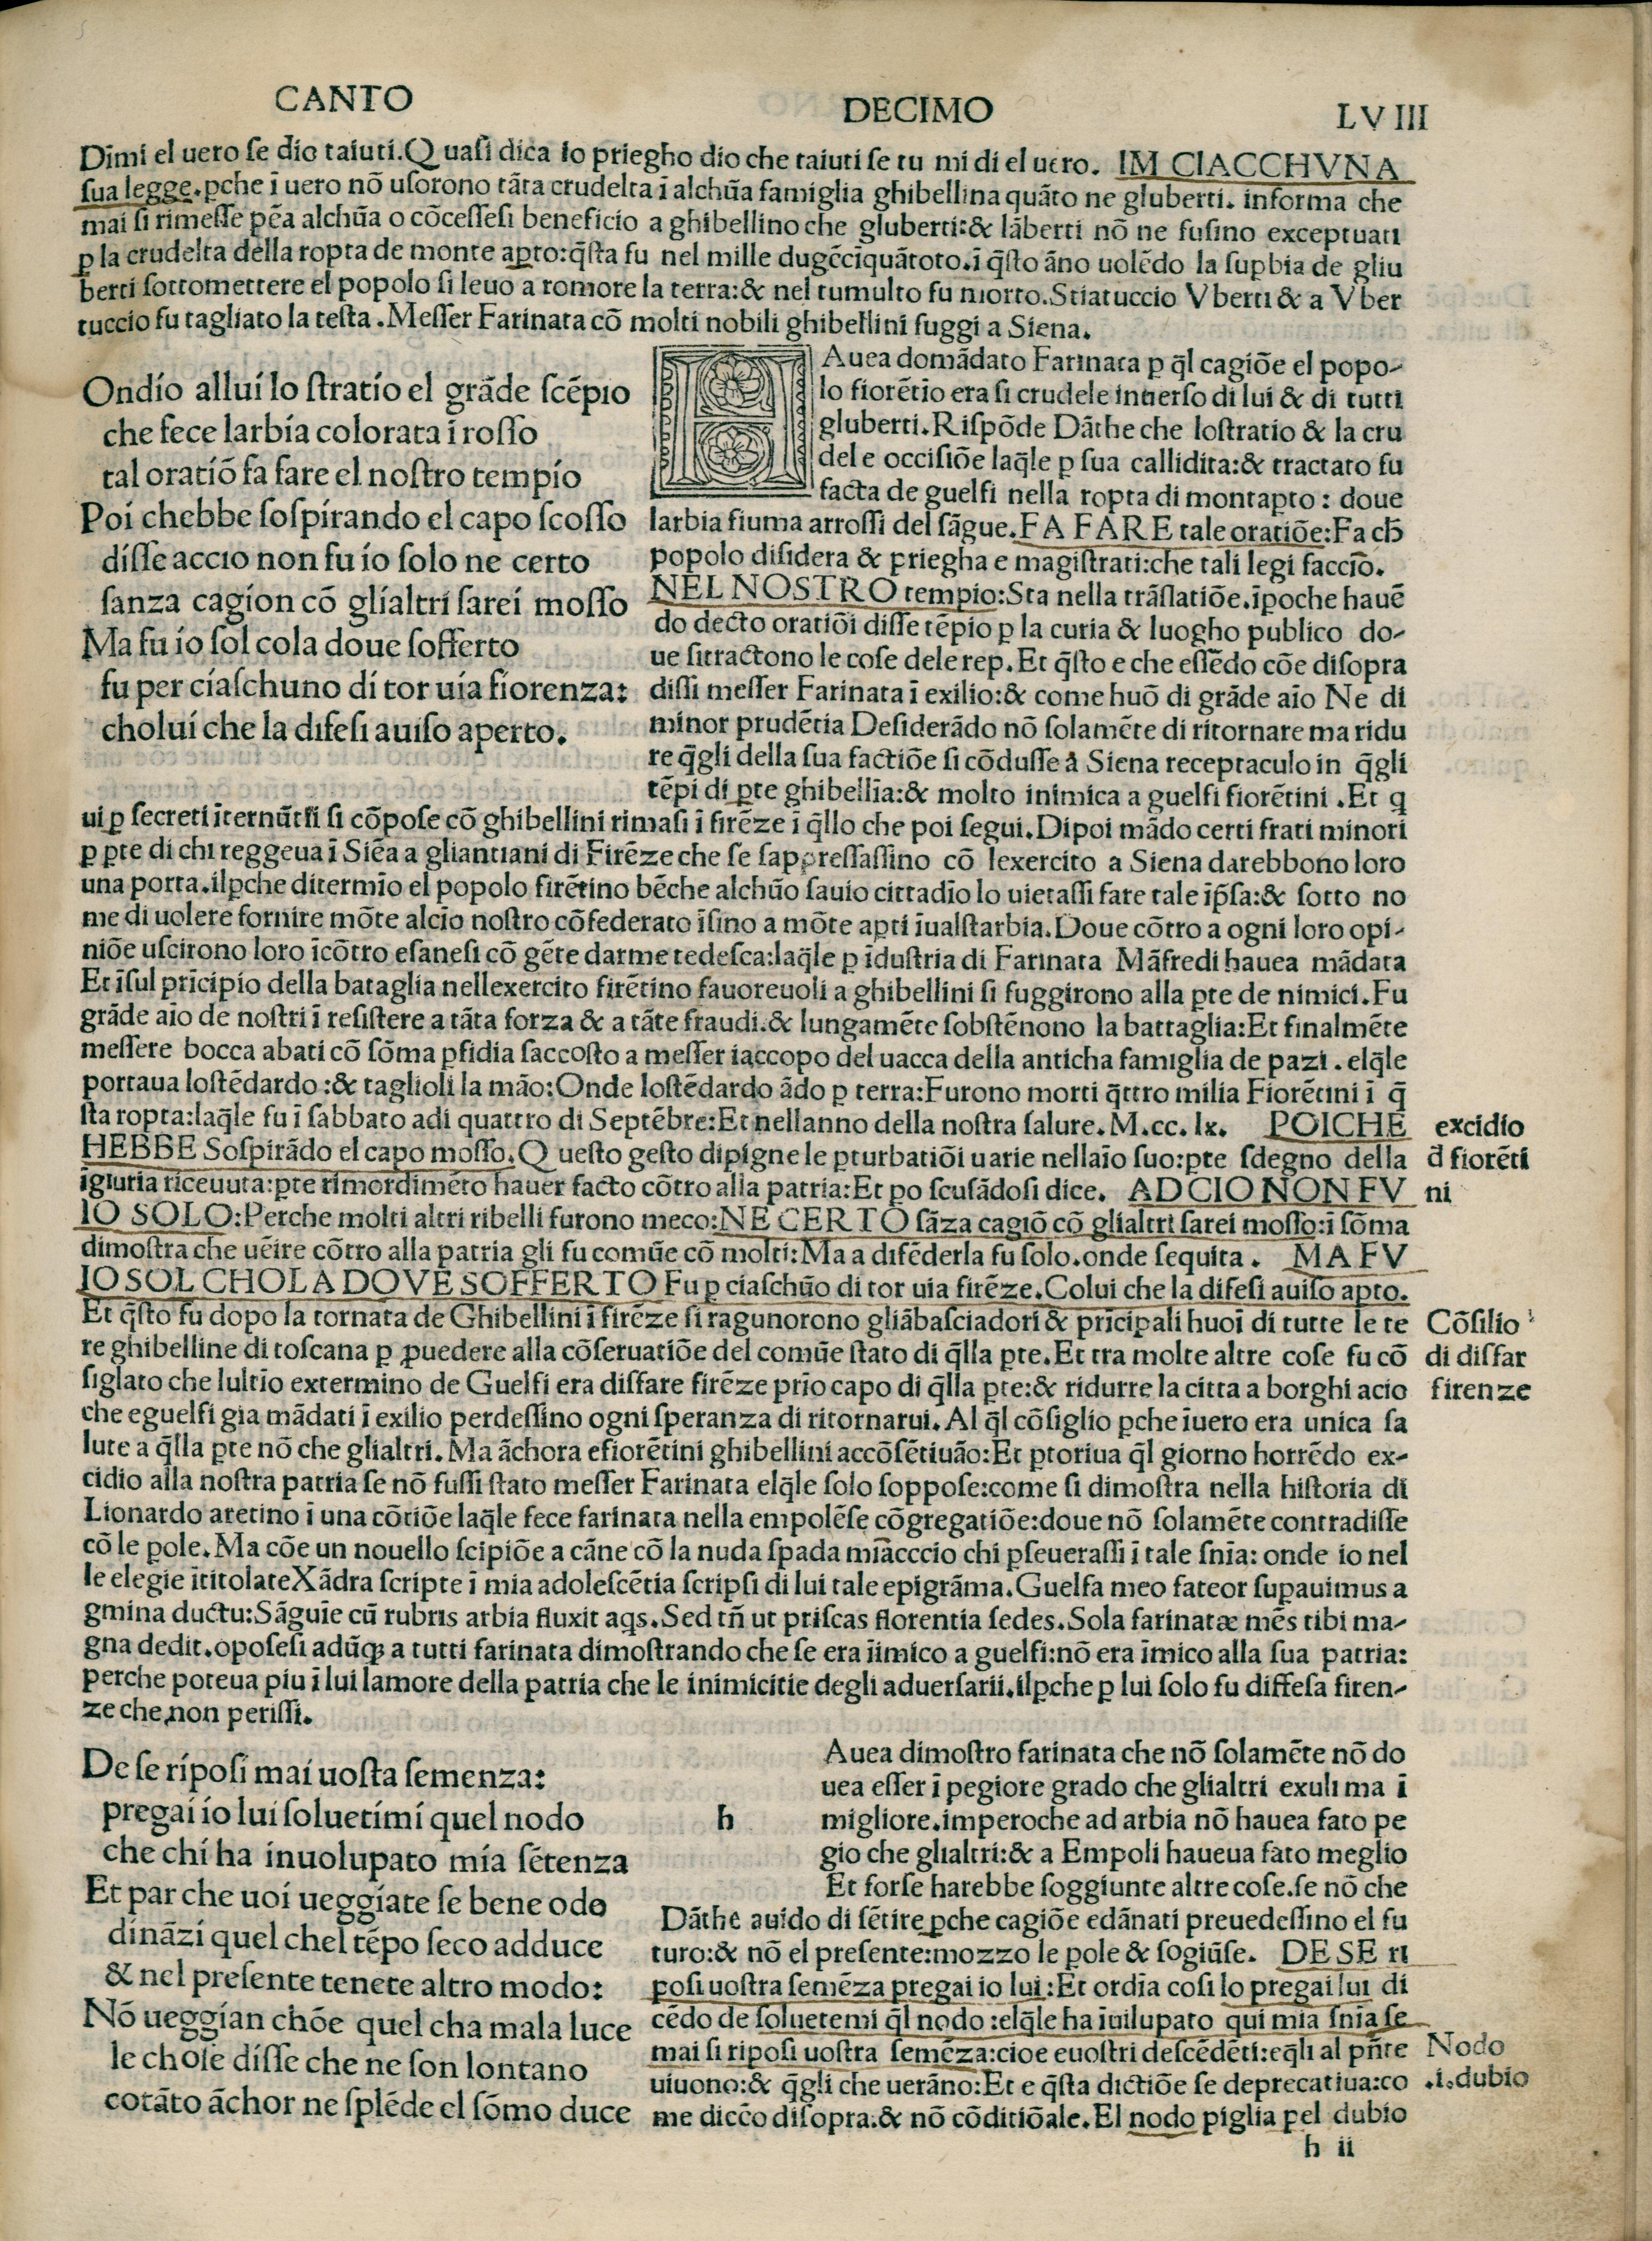 CANTO DECIMO LVIII
Dimi el uero se dio taiuti.Quasi dica Io priegho dio che taiuti se tu mi di el uero. IM CIACCHVNA
sua legge.ꝑche ī uero nō usorono tāta crudelta ī alchūa famiglia ghibellina quāto ne gluberti. informa che
mai si rimesse pēa alchūa o cōcessesi beneficio a ghibellino che gluberti:& lāberti nō ne fusino exceptuati
ꝑ la crudelta della ropta de monte aꝑto:q̄sta fu nel mille dugēcīquātoto.ī q̄sto āno uolēdo la suꝑbia de gliu
berti sottomettere el popolo si leuo a romore la terra:& nel tumulto fu morto.Stiatuccio Vberti & a Vber
tuccio fu tagliato la testa.Messer Farinata cō molti nobili ghibellini fuggi a Siena.
Ondio allui lo stratio el grāde scēpio
che fece larbia colorata ī rosso
tal oratiō fa fare el nostro tempio
Poi chebbe sospirando el capo scosso
disse accio non fu io solo ne certo
sanza cagion cō glialtri sarei mosso
Ma fu io sol cola doue sofferto
fu per ciaschuno di tor uia fiorenza:
cholui che la difesi auiso aperto.
H
Auea domādato Farinata ꝑ q̄l cagiōe el popo-
lo fiorētīo era si crudele inuerso di lui & di tutti
gluberti.Rispōde Dāthe che lostratio & la cru
del e occisiōe laq̄le ꝑ sua callidita:& tractato fu
facta de guelfi nella ropta di montaꝑto: doue
larbia fiuma arrossi del sāgue.FA FARE tale oratiōe:Fa ch̄
popolo disidera & priegha e magistrati:che tali legi facciō.
NEL NOSTRO tempio:Sta nella trāslatiōe.īꝑoche hauē
do decto oratiōi disse tēpio ꝑ la curia & luogho publico do-
ue sitractono le cose dele rep. Et q̄sto e che essēdo cōe disopra
dissi messer Farinata ī exilio:& come huō di grāde aīo Ne di
minor prudētia Desiderādo nō solamēte di ritornare ma ridu
re q̄gli della sua factiōe si cōdusse a Siena receptaculo in q̄gli
tēpi di ꝑte ghibellīa:& molto inimica a guelfi fiorētini .Et q
ui ꝑ secreti īternūtii si cōpose cō ghibellini rimasi ī firēze ī q̄llo che poi segui.Dipoi mādo certi frati minori
ꝑ ꝑte di chi reggeua ī Siēa a gliantiani di Firēze che se sappressassino cō lexercito a Siena darebbono loro
una porta.ilꝑche ditermīo el popolo firētino bēche alchūo sauio cittadīo lo uietassi fare tale īp̄sa:& sotto no
me di uolere fornire mōte alcīo nostro cōfederato īsino a mōte aꝑti īualstarbia.Doue cōtro a ogni loro opi-
niōe uscirono loro īcōtro esanesi cō gēte darme tedesca:laq̄le ꝑ īdustria di Farinata Māfredi hauea mādata
Et īsul prīcipio della bataglia nellexercito firētino fauoreuoli a ghibellini si fuggirono alla ꝑte de nimici.Fu
grāde aīo de nostri ī resistere a tāta forza & a tāte fraudi.& lungamēte sobstēnono la battaglia:Et finalmēte
messere bocca abati cō sōma ꝑfidia saccosto a messer iaccopo del uacca della anticha famiglia de pazi.elq̄le
portaua lostēdardo:& taglioli la māo:Onde lostēdardo ādo ꝑ terra:Furono morti q̄ttro milia Fiorētini ī q̄
sta ropta:laq̄le fu ī sabbato adi quattro di Septēbre:Et nellanno della nostra salute.M.cc.lx. POICHE
HEBBE Sospirādo el capo mosso.Questo gesto dipigne le ꝑturbatiōi uarie nellaīo suo:ꝑte sdegno della
īgiuria riceuuta:ꝑte rimordimēto hauer facto cōtro alla patria:Et ꝑo scusādosi dice. AD CIO NON FV
IO SOLO:Perche molti altri ribelli furono meco:NE CERTO sāza cagiō cō glialtri sarei mosso:ī sōma
dimostra che uēire cōtro alla patria gli fu comūe cō molti:Ma a difēderla fu solo.onde sequita. MA FV
IO SOL CHOLA DOVE SOFFERTO Fu ꝑ ciaschūo di tor uia firēze.Colui che la difesi auiso aꝑto.
Et q̄sto fu dopo la tornata de Ghibellini ī firēze si ragunorono gliābasciadori & prīcipali huoī di tutte le te
re ghibelline di toscana ꝑ ꝓuedere alla cōseruatiōe del comūe stato di q̄lla ꝑte.Et tra molte altre cose fu cō
siglato che lultīo extermino de Guelfi era disfare firēze prīo capo di q̄lla ꝑte:& ridurre la citta a borghi acio
che eguelfi gia mādati ī exilio perdessino ogni speranza di ritornarui.Al q̄l cōsiglio ꝑche īuero era unica sa
lute a q̄lla ꝑte nō che glialtri.Ma āchora efiorētini ghibellini accōsētiuāo:Et ꝑtoriua q̄l giorno horrēdo ex-
cidio alla nostra patria se nō fussi stato messer Farinata elq̄le solo soppose:come si dimostra nella historia di
Lionardo aretino ī una cōtiōe laq̄le fece farinata nella empolēse cōgregatiōe:doue nō solamēte contradisse
cō le ꝑole.Ma cōe un nouello scipiōe a cāne cō la nuda spada mīacccio chi ꝑseuerassi ī tale snīa: onde io nel
le elegie ītitolate Xādra scripte ī mia adolescētia scripsi di lui tale epigrāma.Guelfa meo fateor suꝑauimus a
gmina ductu:Sāguīe cū rubris arbia fluxit aqs.Sed tn̄ ut priscas florentia sedes.Sola farinatæ mēs tibi ma-
gna dedit.oposesi adūqꝫ a tutti farinata dimostrando che se era īimico a guelfi:nō era īmico alla sua patria:
perche poteua piu ī lui lamore della patria che le inimicitie degli aduersarii.ilꝑche ꝑ lui solo fu diffesa firen-
ze che non perissi.
excidio
d̄ fiorēti
ni
Cōsilio
di disfar
firenze
De se riposi mai uosta semenza:
pregai io lui soluetimi quel nodo
che chi ha inuolupato mia sētenza
Et par che uoi ueggiate se bene odo
dināzi quel chel tēpo seco adduce
& nel presente tenete altro modo:
Nō ueggian chōe quel cha mala luce
le chose disse che ne son lontano
cotāto āchor ne splēde el sōmo duce
h
Auea dimostro farinata che nō solamēte nō do
uea esser ī pegiore grado che glialtri exuli ma ī
migliore.imperoche ad arbia nō hauea fato pe
gio che glialtri:& a Empoli haueua fato meglio
Et forse harebbe soggiunte altre cose.se nō che
Dāthe auido di sētire ꝑche cagiōe edānati preuedessino el fu
turo:& nō el presente:mozzo le ꝑole & sogiūse. DE SE ri
posi uostra semēza pregai io lui:Et ordīa cosi Io pregai lui di
cēdo de soluetemi q̄l nodo:elq̄le ha īuilupato qui mia snīa se
mai si riposi uostra semēza:cioe euostri descēdēti:eq̄li al pn̄te
uiuono:& q̄gli che uerāno:Et e q̄sta dictiōe se deprecatiua:co
me dicco disopra.& nō cōditiōale.El nodo piglia ꝑel dubio
Nodo
.i.dubio
h ii